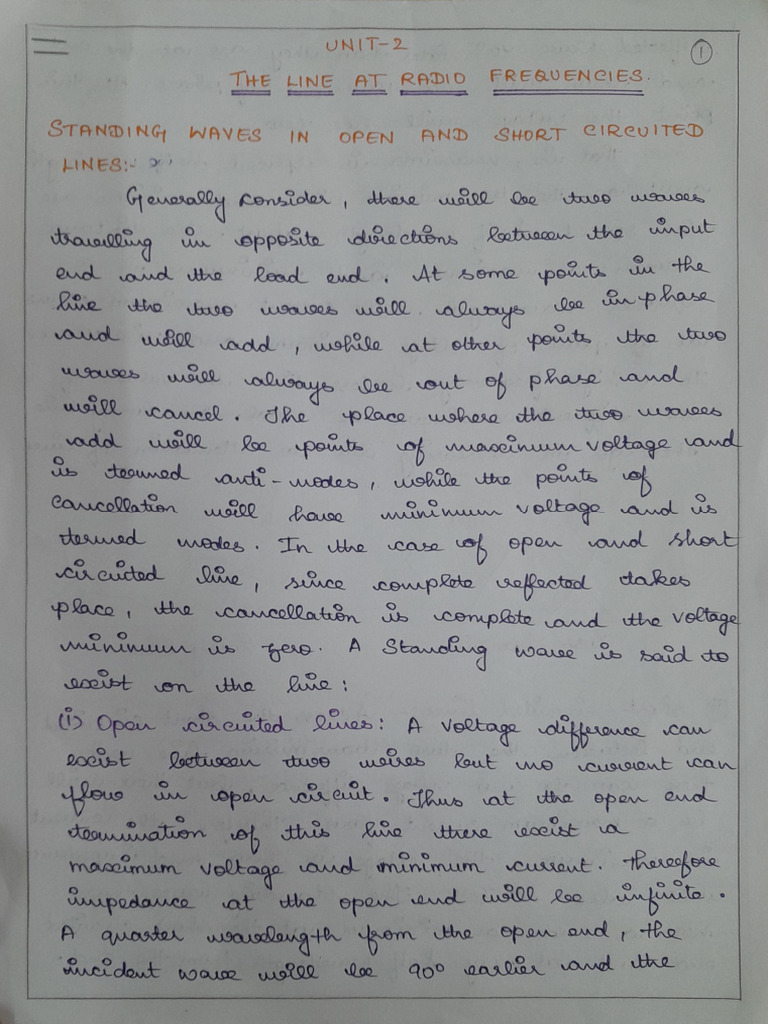 UNIT-2
1
THE LINE AT RADIO FREQUENCIES.
STANDING WAVES IN OPEN AND SHORT CIRCUITED
LINES:-
Generally consider, there will be two waves
travelling in opposite directions between the input
end and the load end. At some points in the
line the two waves will always be in phase
and will add, while at other points the two
waves will always be out of phase and
will cancel. The place where the two waves
add will be points of maximum voltage and
is termed anti-nodes, while the points of
cancellation will have minimum voltage and is
termed nodes. In the case of open and short
circuited line, since complete reflected takes
place, the cancellation is complete and the voltage
minimum is zero. A Standing wave is said to
exist on the line:
(i) Open circuited lines: A voltage difference can
exist between two wires but no current can
flow in open circuit. Thus at the open end
termination of this line there exist a
maximum voltage and minimum current. Therefore
impedance at the open end will be infinite.
A quarter wavelength from the open end, the
incident wave will be 90° earlier and the